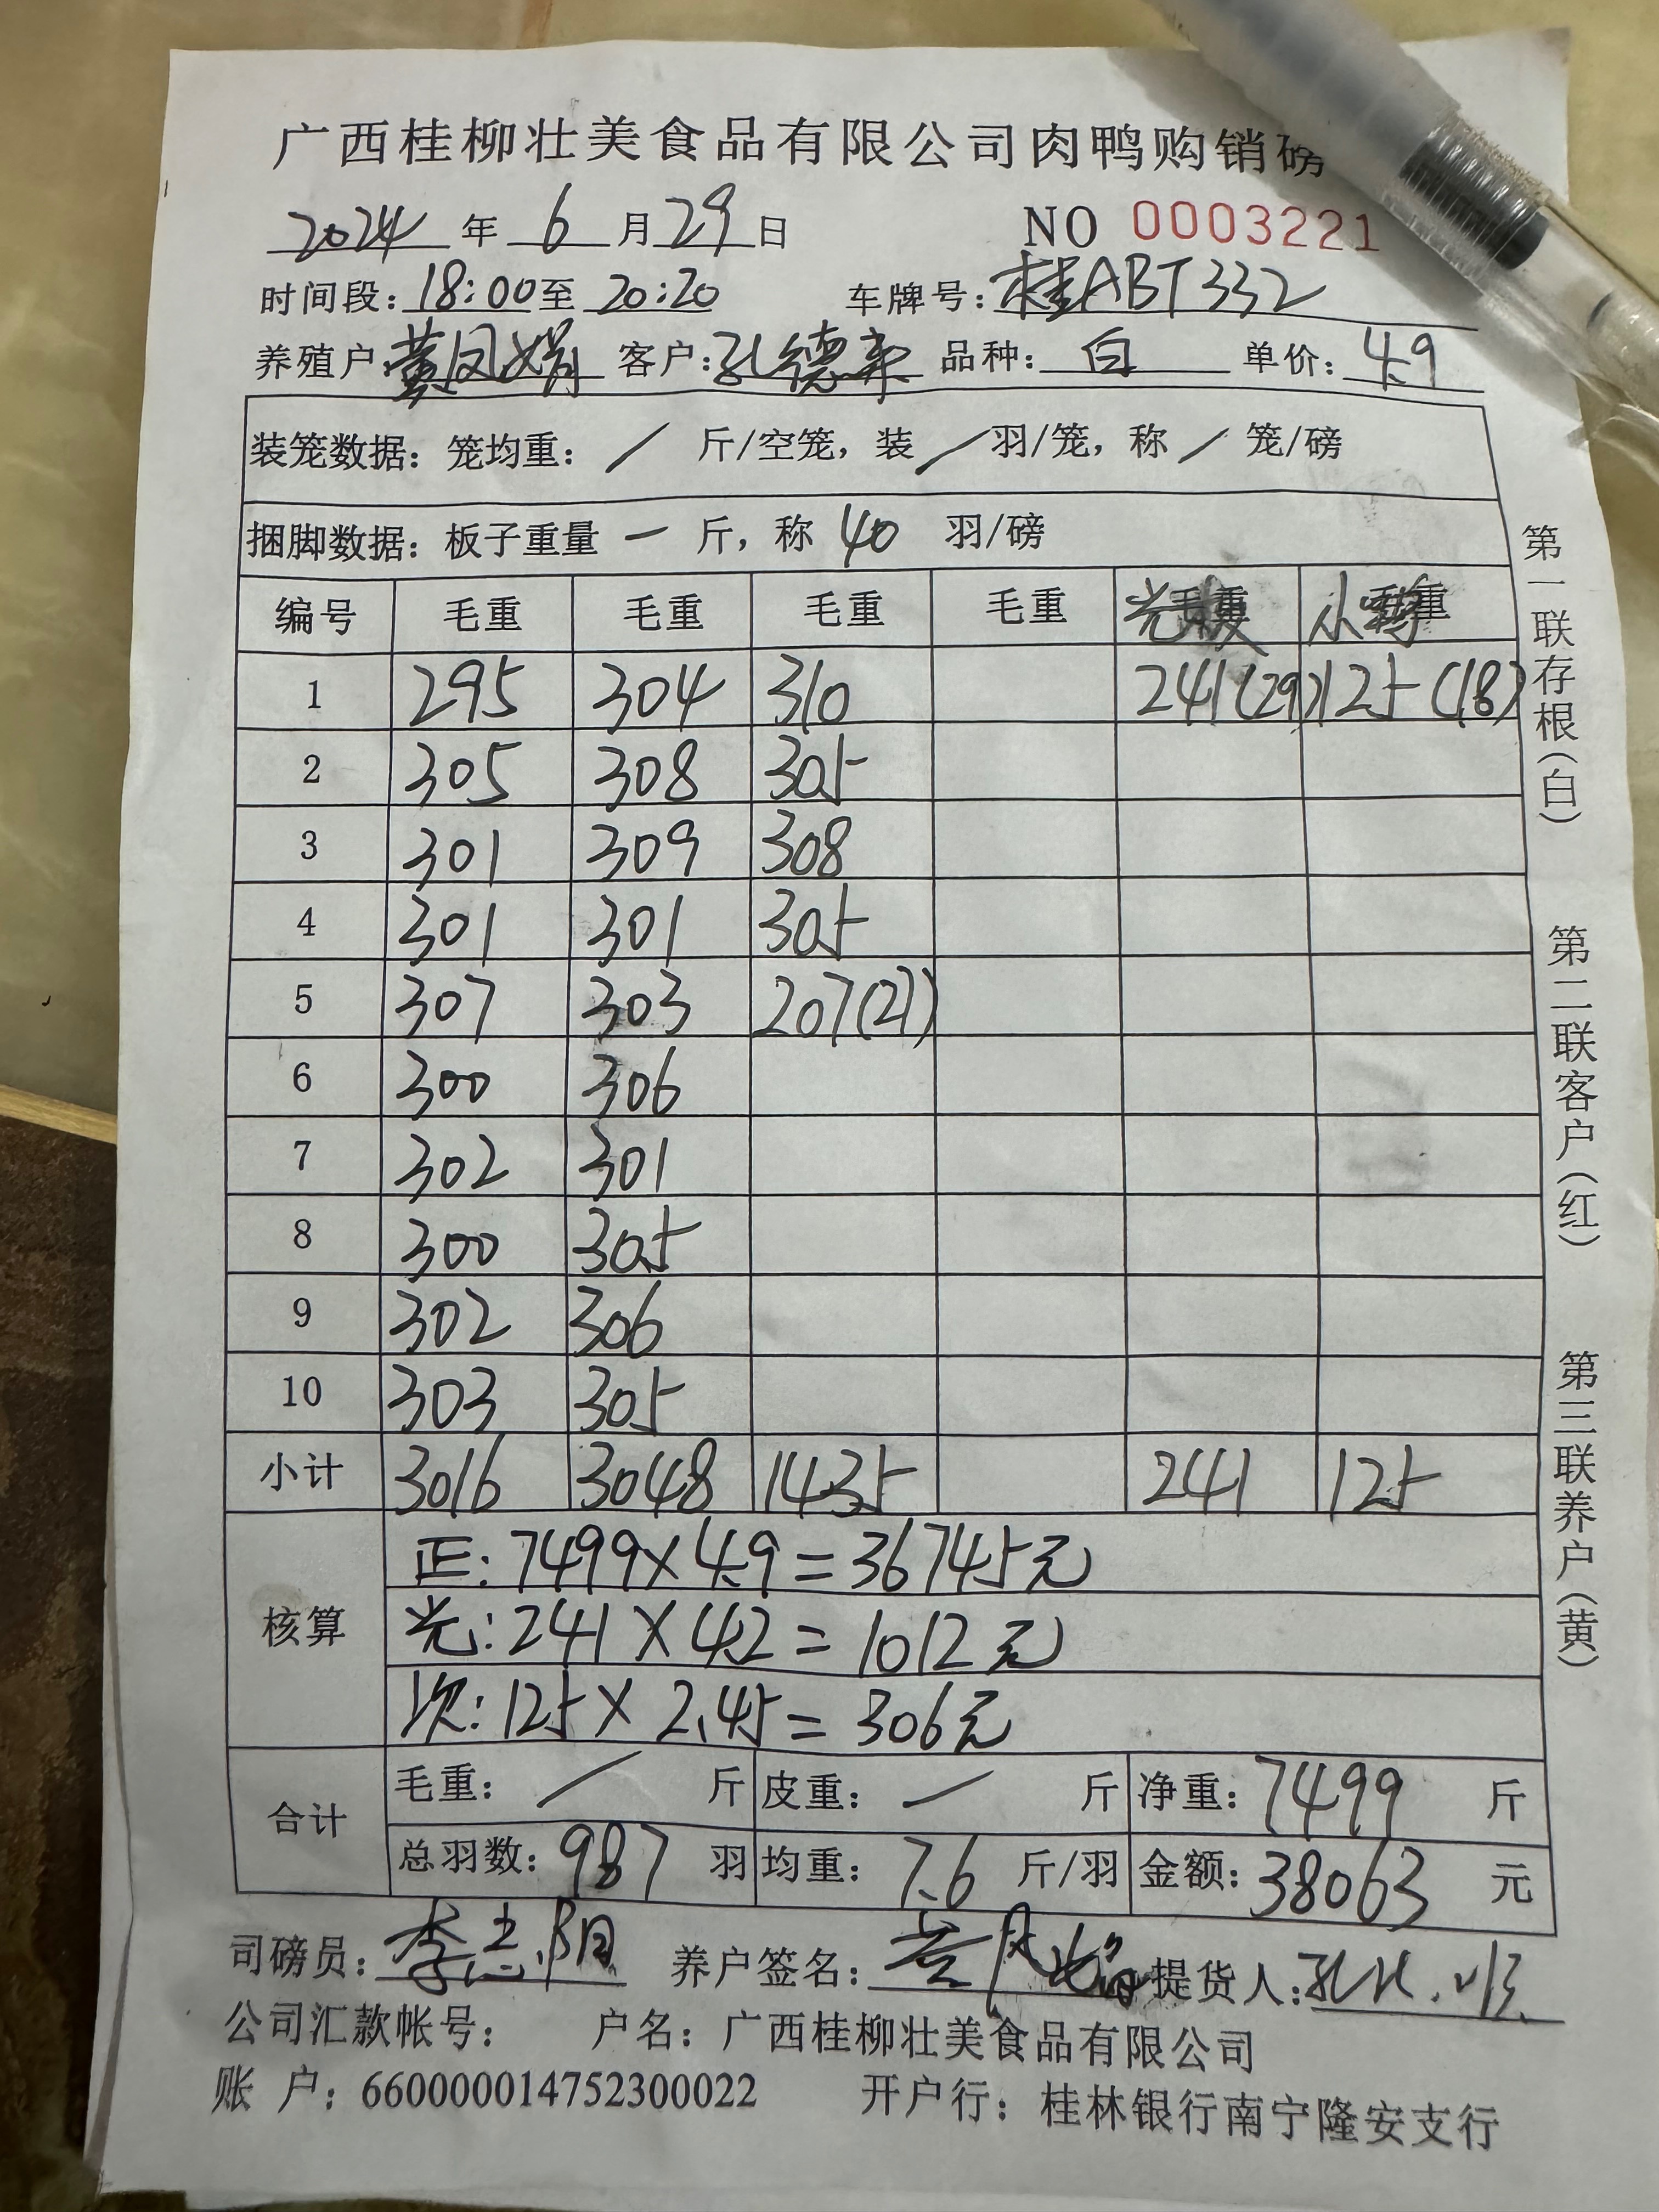 广西桂柳壮美食品有限公司肉鸭购销磅
2024 年 6 月 29 日 NO 0003221
时间段：18:00 至 20:20 车牌号：桂ABT332
养殖户：黄凤娟 客户：孔德 品种：白 单价：4.9
装笼数据：笼均重：/ 斤/空笼，装 / 羽/笼，称 / 笼/磅
捆脚数据：板子重量 一 斤，称 40 羽/磅
编号 毛重 毛重 毛重 毛重 毛重 毛重
1 295 304 310 241(29) 125(18)
2 305 308 305
3 301 309 308
4 301 301 305
5 307 303 207(27)
6 300 306
7 302 301
8 300 305
9 302 306
10 303 305
小计 3016 3048 1435 241 125
核算 正：7499×4.9=36745元
光：241×4.2=1012元
次：125×2.45=306元
合计 毛重：/ 斤 皮重：/ 斤 净重：7499 斤
总羽数：987 羽 均重：7.6 斤/羽 金额：38063 元
司磅员：李志阳 养户签名：黄凤娟 提货人：
公司汇款帐号： 户名：广西桂柳壮美食品有限公司
账 户：660000014752300022 开户行：桂林银行南宁隆安支行
第一联存根（白） 第二联客户（红） 第三联养户（黄）